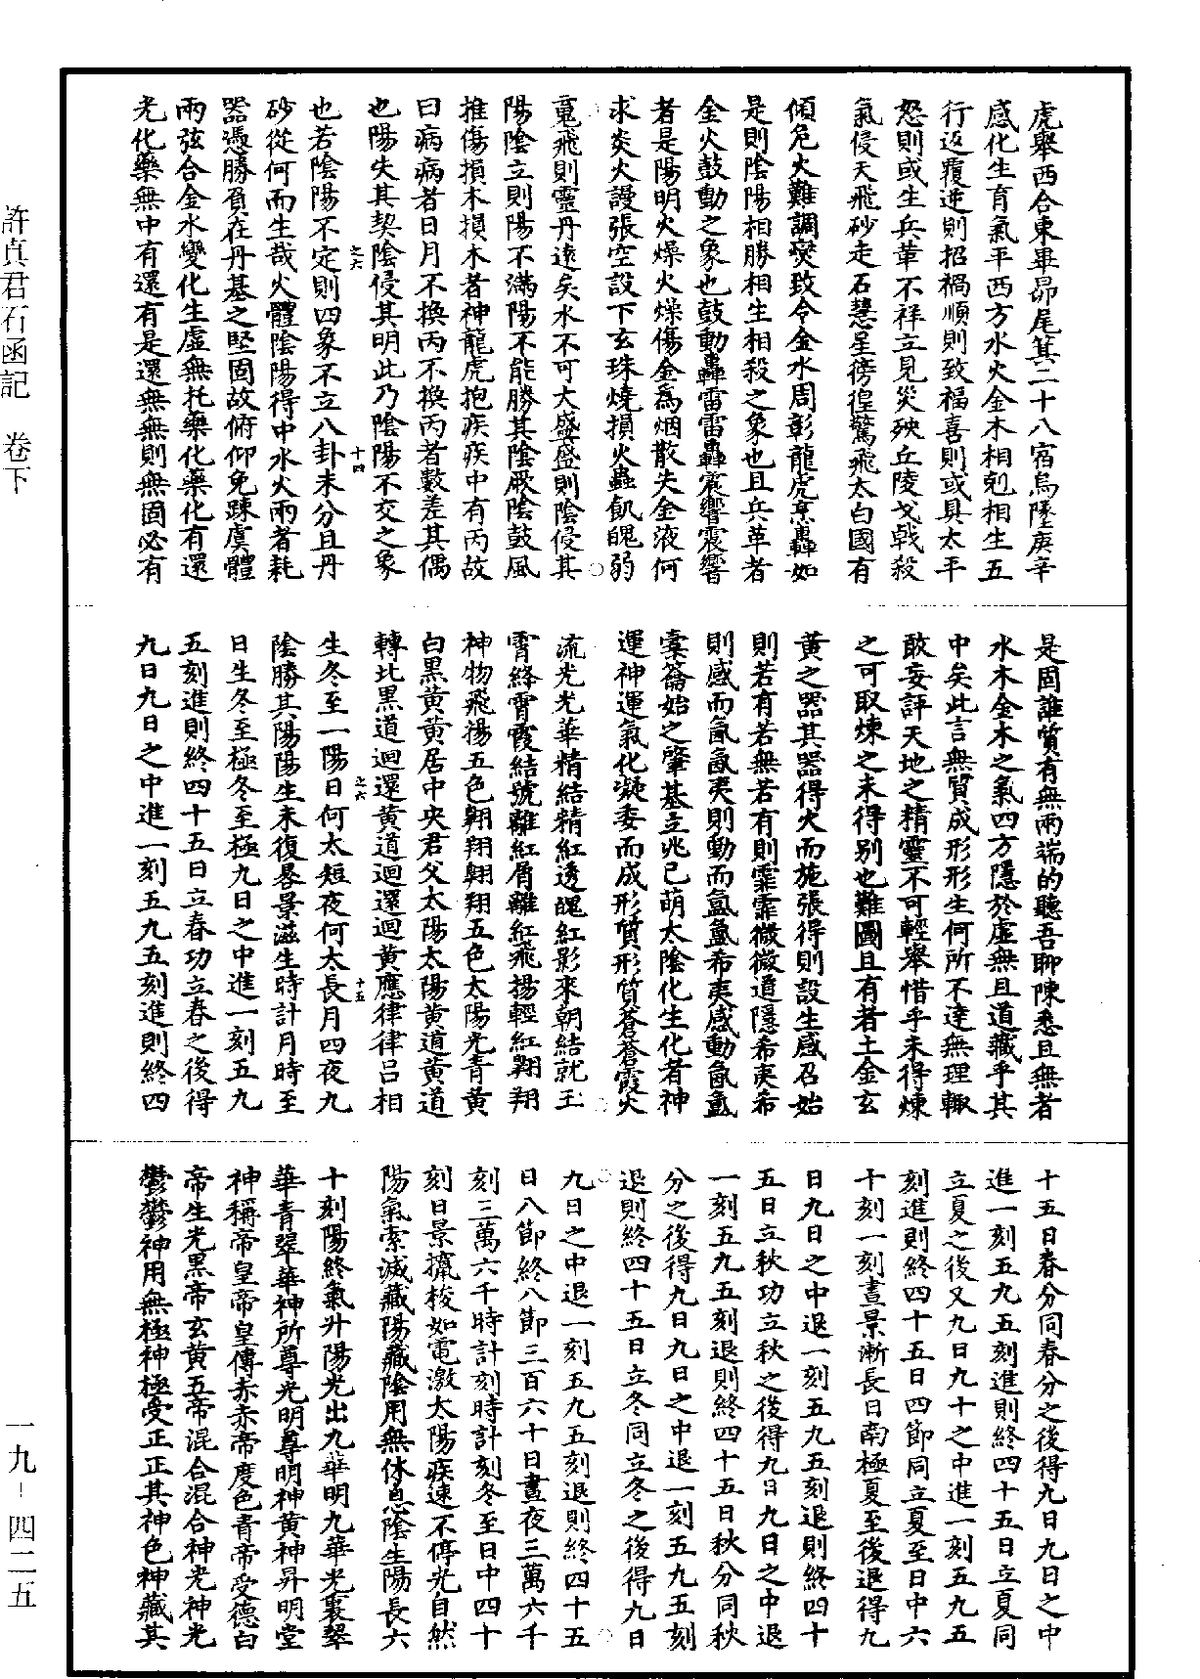 虎舉西合東畢昴尾箕二十八宿烏墜庚辛
感化生育氣平西方水火金木相剋相生五
行返覆逆則招禍順則致福喜則或具太平
怒則或生兵革不祥立見災殃丘陵戈戟殺
氣侵天飛砂走石慧星徬徨驚飛太白國有
傾危火難調燮致令金水周彰龍虎烹轟如
是則陰陽相勝相生相殺之象也且兵革者
金火鼓動之象也鼓動轟雷雷轟震響震響
者是陽明火燥火燥傷金為烟散失金液何
求炎火謾張空設下玄珠燒損火蟲飢餽弱
竟飛則靈丹遠矣水不可大盛盛則陰侵其
陽陰立則陽不滿陽不能勝其陰厥陰鼓風
推傷損木損木者神龍虎抱疾疾中有丙故
曰病病者日月不換丙不換丙者數差其偶
也陽失其契陰侵其明此乃陰陽不交之象
之六
十四
也若陰陽不定則四象不立八卦未分且丹
砂從何而生哉火體陰陽得中水火兩者耗
器憑勝負在丹基之堅固故俯仰免踈虞體
兩弦合金水變化生虛無托藥化藥化有還
光化藥無中有還有是還無無則無固必有
是固誰質有無兩端的聽吾聊陳悉且無者
水木金木之氣四方隱於虛無且道藏乎其
中矣此言無質成形形生何所不達無理輙
敢妄評天地之精靈不可輕舉惜乎未得煉
之可取煉之未得别也難圖且有者土金玄
黃之器其器得火而施張得則設生感召始
則若有若無若有則霏霏微微道隱希夷希
則感而氤氤夷則動而氳氳希夷感動氤氳
橐籥始之肇基立兆已萌太陰化生化者神
運神運氣化凝委而成形質形質蒼蒼霞火
流光光華精結精紅透餽紅影來朝結就玉
霄絳霄霞結號離紅屑離紅飛揚輕紅翱翔
神物飛揚五色翱翔翱翔五色太陽光青黃
白黑黃黃居中央君父太陽太陽黃道黃道
轉北黑道迴還黃道迴還迴黃應律律呂相
之六
十五
生冬至一陽日何太短夜何太長月四夜九
陰勝其陽陽生未復晷景滋生時計月時至
日生冬至極冬至極九日之中進一刻五九
五刻進則終四十五日立春功立春之後得
九日九日之中進一刻五九五刻進則終四
十五日春分同春分之後得九日九日之中
進一刻五九五刻進則終四十五日立夏同
立夏之後又九日九十之中進一刻五九五
刻進則終四十五日四節同立夏至日中六
十刻一刻晝景漸長日南極夏至後退得九
日九日之中退一刻五九五刻退則終四十
五日立秋功立秋之後得九日九日之中退
一刻五九五刻退則終四十五日秋分同秋
分之後得九日九日之中退一刻五九五刻
退則終四十五日立冬同立冬之後得九日
九日之中退一刻五九五刻退則終四十五
日八節終八節三百六十日晝夜三萬六千
刻三萬六千時計刻時計刻冬至日中四十
刻日景攛梭如電激太陽疾速不停光自然
陽氣索滅藏陽藏陰用無休息陰生陽長六
十刻陽終氣升陽光出九華明九華光裏翠
華青翠華神所尊光明尊明神黃神昇明堂
神稱帝皇帝皇傳赤赤帝度色青帝受德白
帝生光黑帝玄黃五帝混合混合神光神光
鬱鬱神用無極神極受正正其神色神藏其
許真君石函記 卷下
一九－四二五